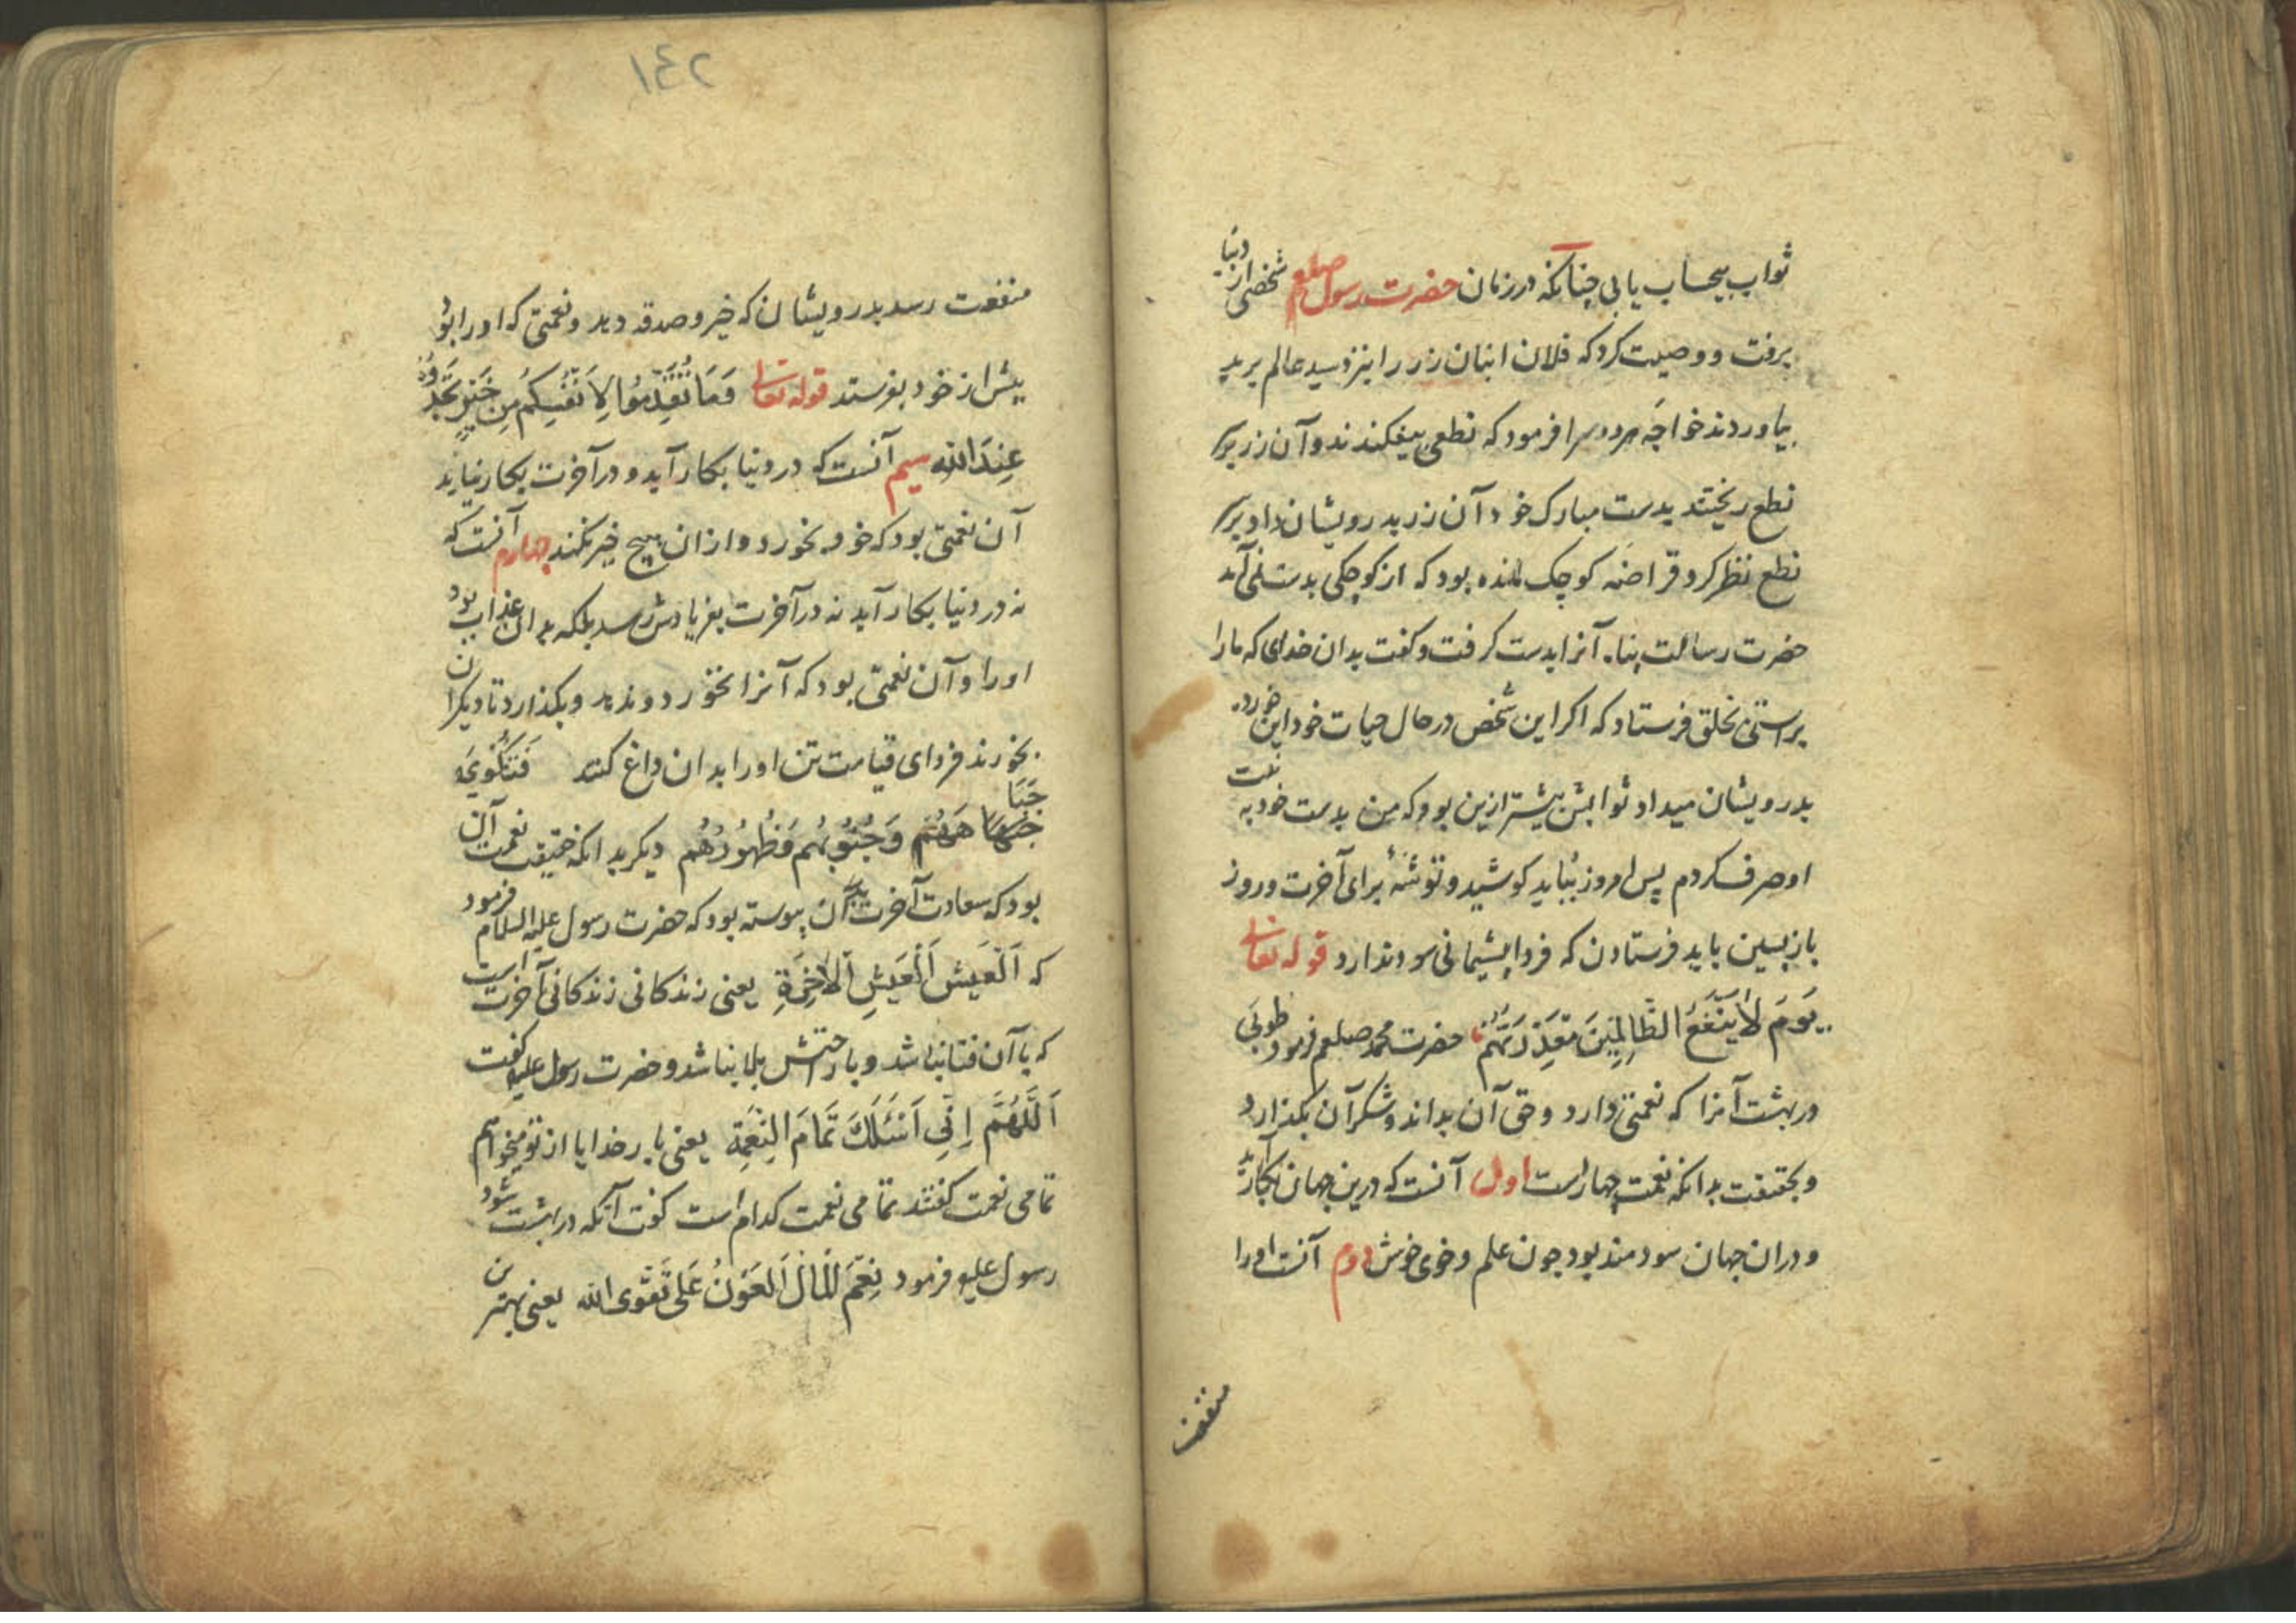 ثواب بیحساب یابی چنانکه در زمان حضرت رسول صلعم شخصی از دنیا
برفت و وصیت کرد که فلان انبان زر را بنزد سید عالم برید
بیاوردند خواجه هر دو سرا فرمود که نطعی بیفکندند و آن زر بر
نطع ریختند بدست مبارک خود آن زر بدرویشان داد و بر
نطع نظر کرد قراضه کوچک مانده بود که از کوچکی بدست نمی آمد
حضرت رسالت پناه آنرا بدست گرفت و کفت بدان خدای که ما را
براستی بخلق فرستاد که اکر این شخص در حال حیات خود این خورده
بدرویشان میداد ثوابش بیشتر ازین بود که من بدست خود به نیت
او صرف کردم پس امروز بباید کوشید و توشۀ برای آخرت و روز
بازپسین باید فرستادن که فردا پشیمانی سود ندارد قوله تعالی
یَومَ لاَیَنْفَعُ الظَّالِمِینَ مَعْذِرَتُهُمْ حضرت محمد صلعم فرمود طوبَی
در بهشت آنرا که نعمتی دارد و حق آن بداند و شکر آن بکذارد
و بحقیقت بدانکه نعمت چهار است اول آنست که درین جهان بکار آید
و در ان جهان سودمند بود چون علم و خوی خوش دوم آنست او را
منفعت
١٤٢
منفعت رسد بدرویشان که خیر و صدقه دهد و نعمتی که او را بود
پیش از خود بفرستد قوله تعالی وَمَا تُقَدِّمُوا لِاَنْفُسِکُمْ مِن خَیْرٍ تَجِدُوهُ
عِندَ اللّهِ سیم آنست که در دنیا بکار آید و در آخرت بکار نیاید
آن نعمتی بود که خود بخورد و از ان هیچ خیر نکند چهارم آنست که
نه در دنیا بکار آید نه در آخرت بفریادش رسد بلکه بدان عذاب بود
او را و آن نعمتی بود که آنرا نخورد و ندهد و بکذارد تا دیکران
بخورند فردای قیامت تن او را بدان داغ کنند فَتُکْوَی بِهَا
جِبَاهُهُم وَجُنُوبُهُم وَظُهُورُهُم دیکر بدانکه حقیقت نعمت آن
بود که سعادت آخرت بدان پیوسته بود که حضرت رسول علیه السلام فرمود
که اَلْعَیشُ اَلْعَیشِ اَلاٰخِرَةِ یعنی زندکانی زندکانی آخرت است
که با آن فنا نباشد و با راحتش بلا نباشد و حضرت رسول علیه کفت
اَللَّهُمَّ اِنِّی اَسْئَلُکَ تَمَامَ النِعْمَةِ یعنی بار خدایا از تو میخواهم
تمامی نعمت کفتند تمامی نعمت کدام است کفت آنکه در بهشت شود
رسول علیه فرمود نِعْمَ لْمَالَ اَلعَوْنُ عَلَی تَقْوَی الله یعنی بهترین